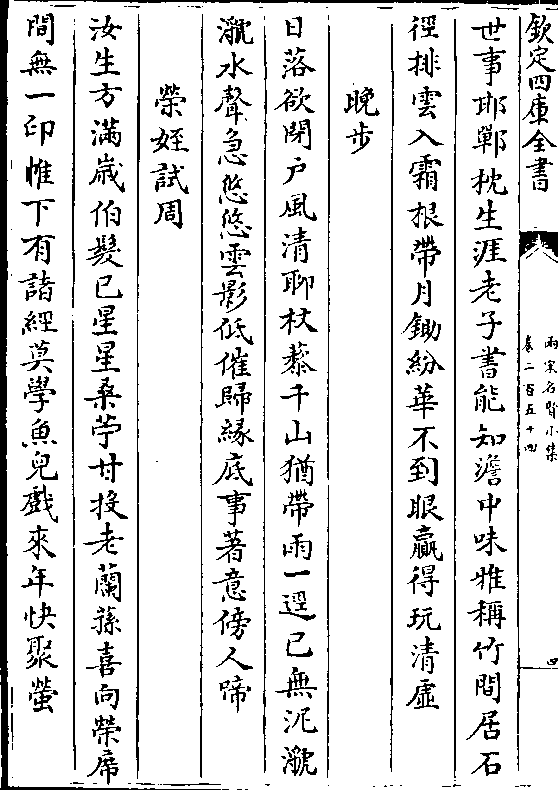 欽定四庫全書
兩宋名賢小集
卷二百五十四
四
世事邯鄲枕生涯老子書能知澹中味雅稱竹間居石
徑排雲入霜根帶月鋤紛華不到眼贏得玩清虛
晚步
日落欲閉戶風清聊杖藜千山猶帶雨一逕已無泥㶁
㶁水聲急悠悠雲影低催歸緣底事著意傍人啼
榮姪試周
汝生方滿歲伯髮已星星桑苧甘投老蘭蓀喜向榮席
間無一印惟下有諸經莫學魚兒戲來年快聚螢